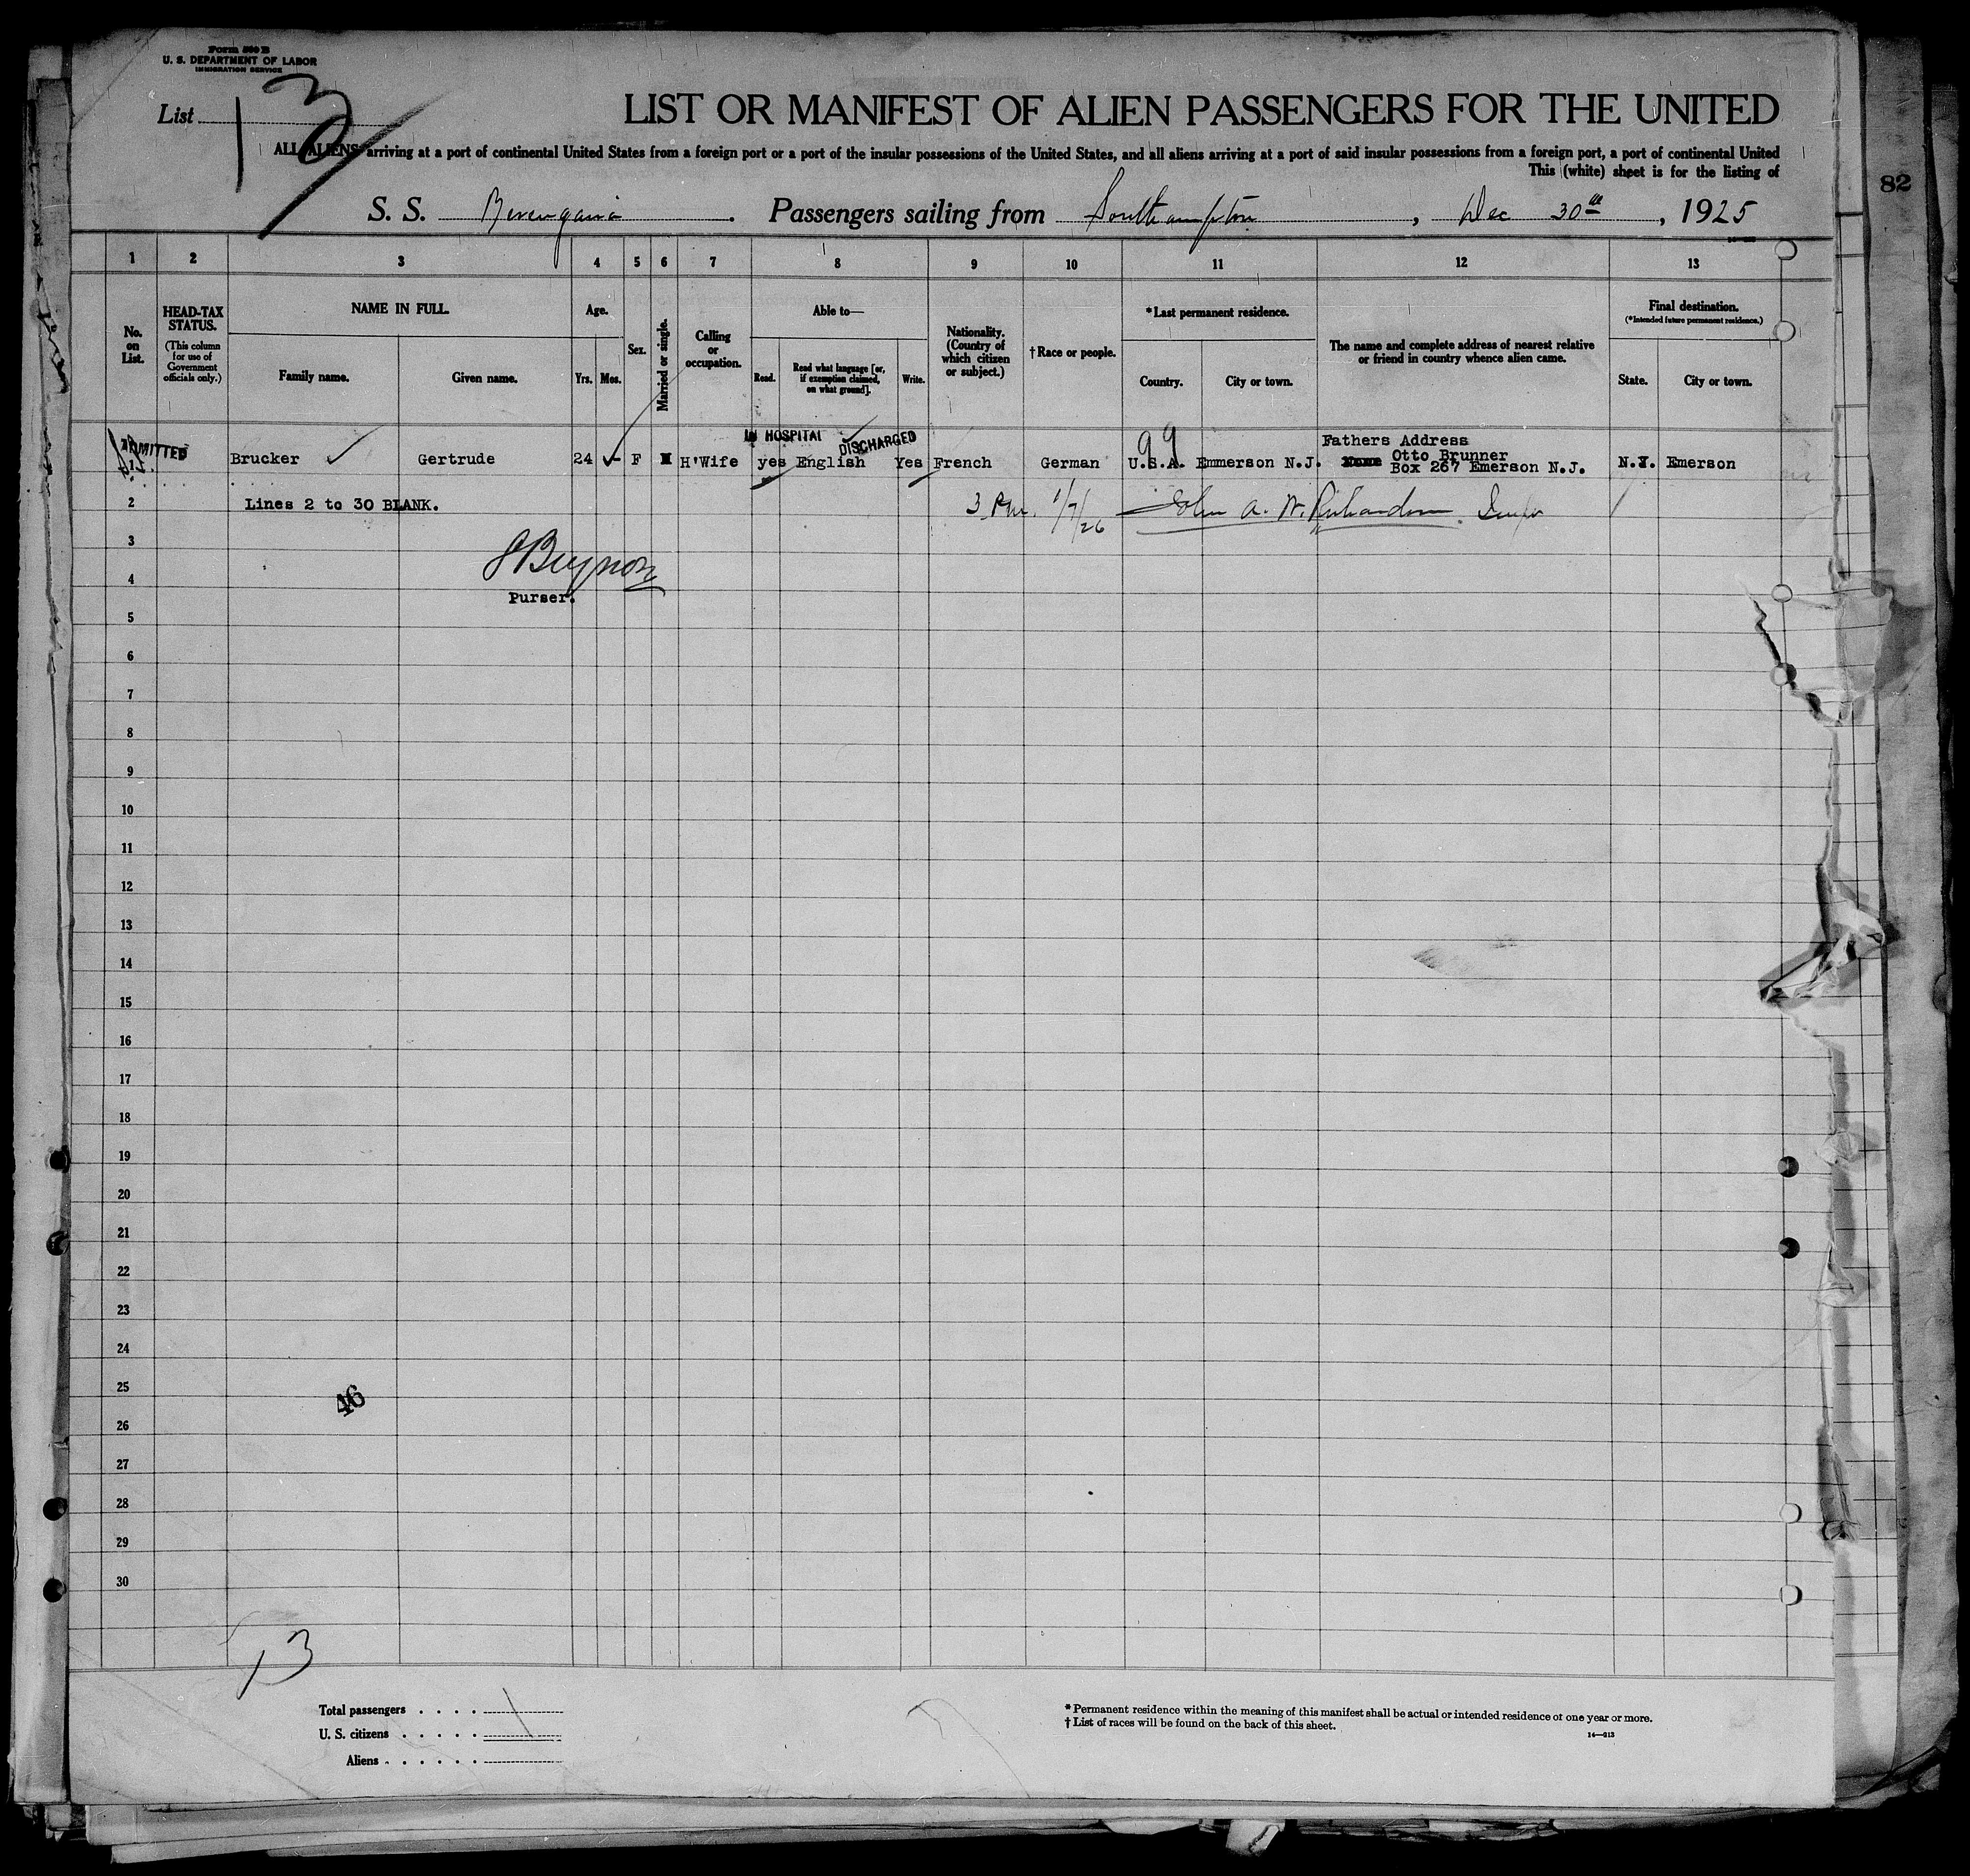 Form 500 B
U. S. DEPARTMENT OF LABOR
IMMIGRATION SERVICE
List 13
LIST OR MANIFEST OF ALIEN PASSENGERS FOR THE UNITED
ALL ALIENS arriving at a port of continental United States from a foreign port or a port of the insular possessions of the United States, and all aliens arriving at a port of said insular possessions from a foreign port, a port of continental United
This (white) sheet is for the listing of
82
S. S. Berengaria . Passengers sailing from Southampton , Dec 30th , 1925
1 2 3 4 5 6 7 8 9 10 11 12 13
No. on List.
HEAD-TAX STATUS.
(This column for use of Government officials only.)
NAME IN FULL.
Family name. Given name.
Age.
Yrs. Mos.
Sex.
Married or single.
Calling or occupation.
Able to—
Read. Read what language [or, if exemption claimed, on what ground]. Write.
Nationality. (Country of which citizen or subject.)
†Race or people.
*Last permanent residence.
Country. City or town.
The name and complete address of nearest relative or friend in country whence alien came.
Final destination.
(*Intended future permanent residence.)
State. City or town.
ADMITTED
IN HOSPITAL DISCHARGED
99
Fathers Address
1 Brucker Gertrude 24 - F H'Wife yes English Yes French German U.S.A. Emmerson N.J. Otto Brunner N.J. Emerson
Box 267 Emerson N.J.
2 Lines 2 to 30 BLANK. 3 P.m. 1/7/26 John A. W. Richardson
3
J Beynon
4
Purser.
5
6
7
8
9
10
11
12
13
14
15
16
17
18
19
20
21
22
23
24
25
46
26
27
28
29
30
13
Total passengers . . . .
U. S. citizens . . . . .
Aliens . . . . . .
* Permanent residence within the meaning of this manifest shall be actual or intended residence of one year or more.
† List of races will be found on the back of this sheet.
14—213